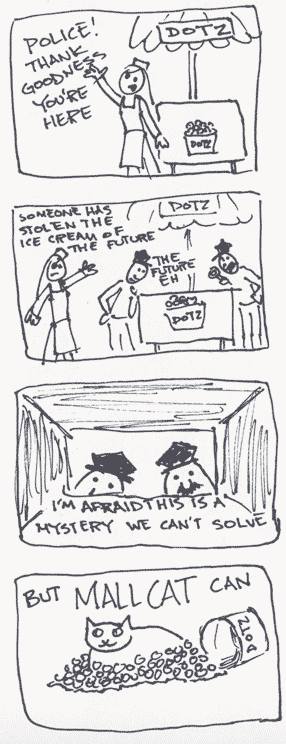 DOTZ
POLICE!
THANK
GOODNESS
YOU'RE
HERE
DOTZ
DOTZ
SOMEONE HAS
STOLEN THE
ICE CREAM OF
THE FUTURE
THE
FUTURE
EH
DOTZ
I'M AFRAID THIS IS A
MYSTERY WE CAN'T SOLVE
BUT MALLCAT CAN
DOTZ